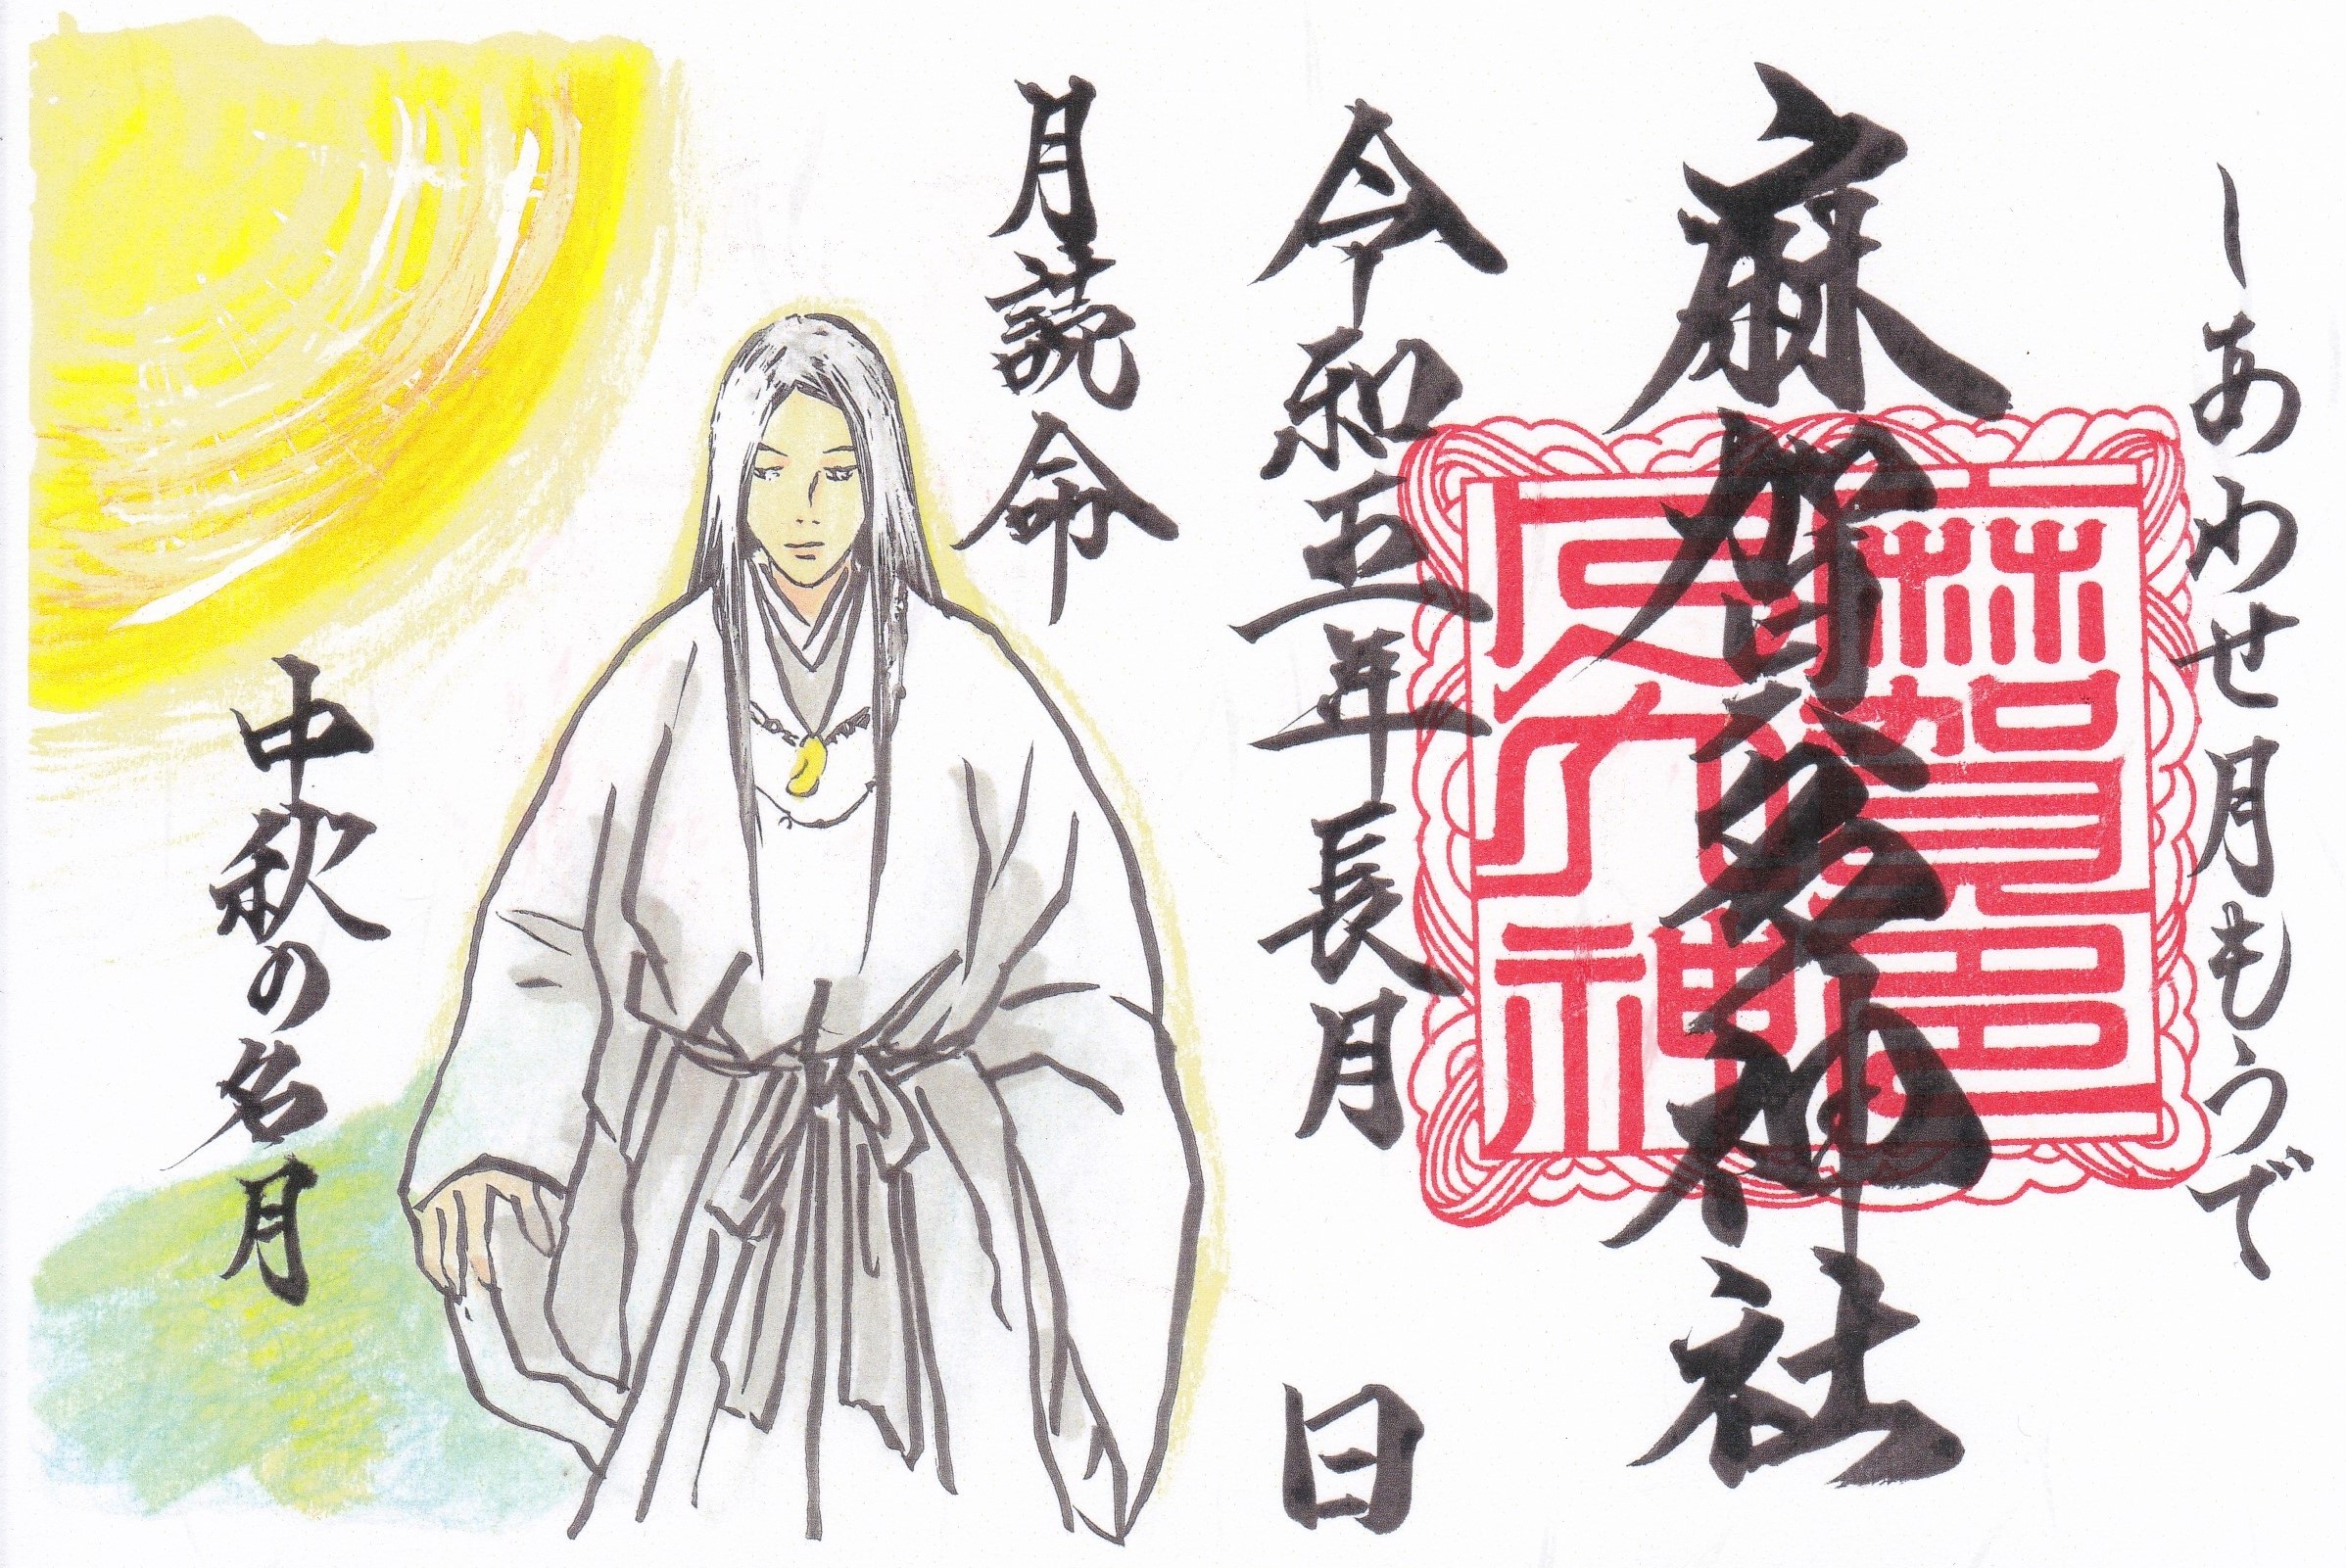 しあわせ月もうで
麻賀多神社
令和五年長月 日
月読命
中秋の名月